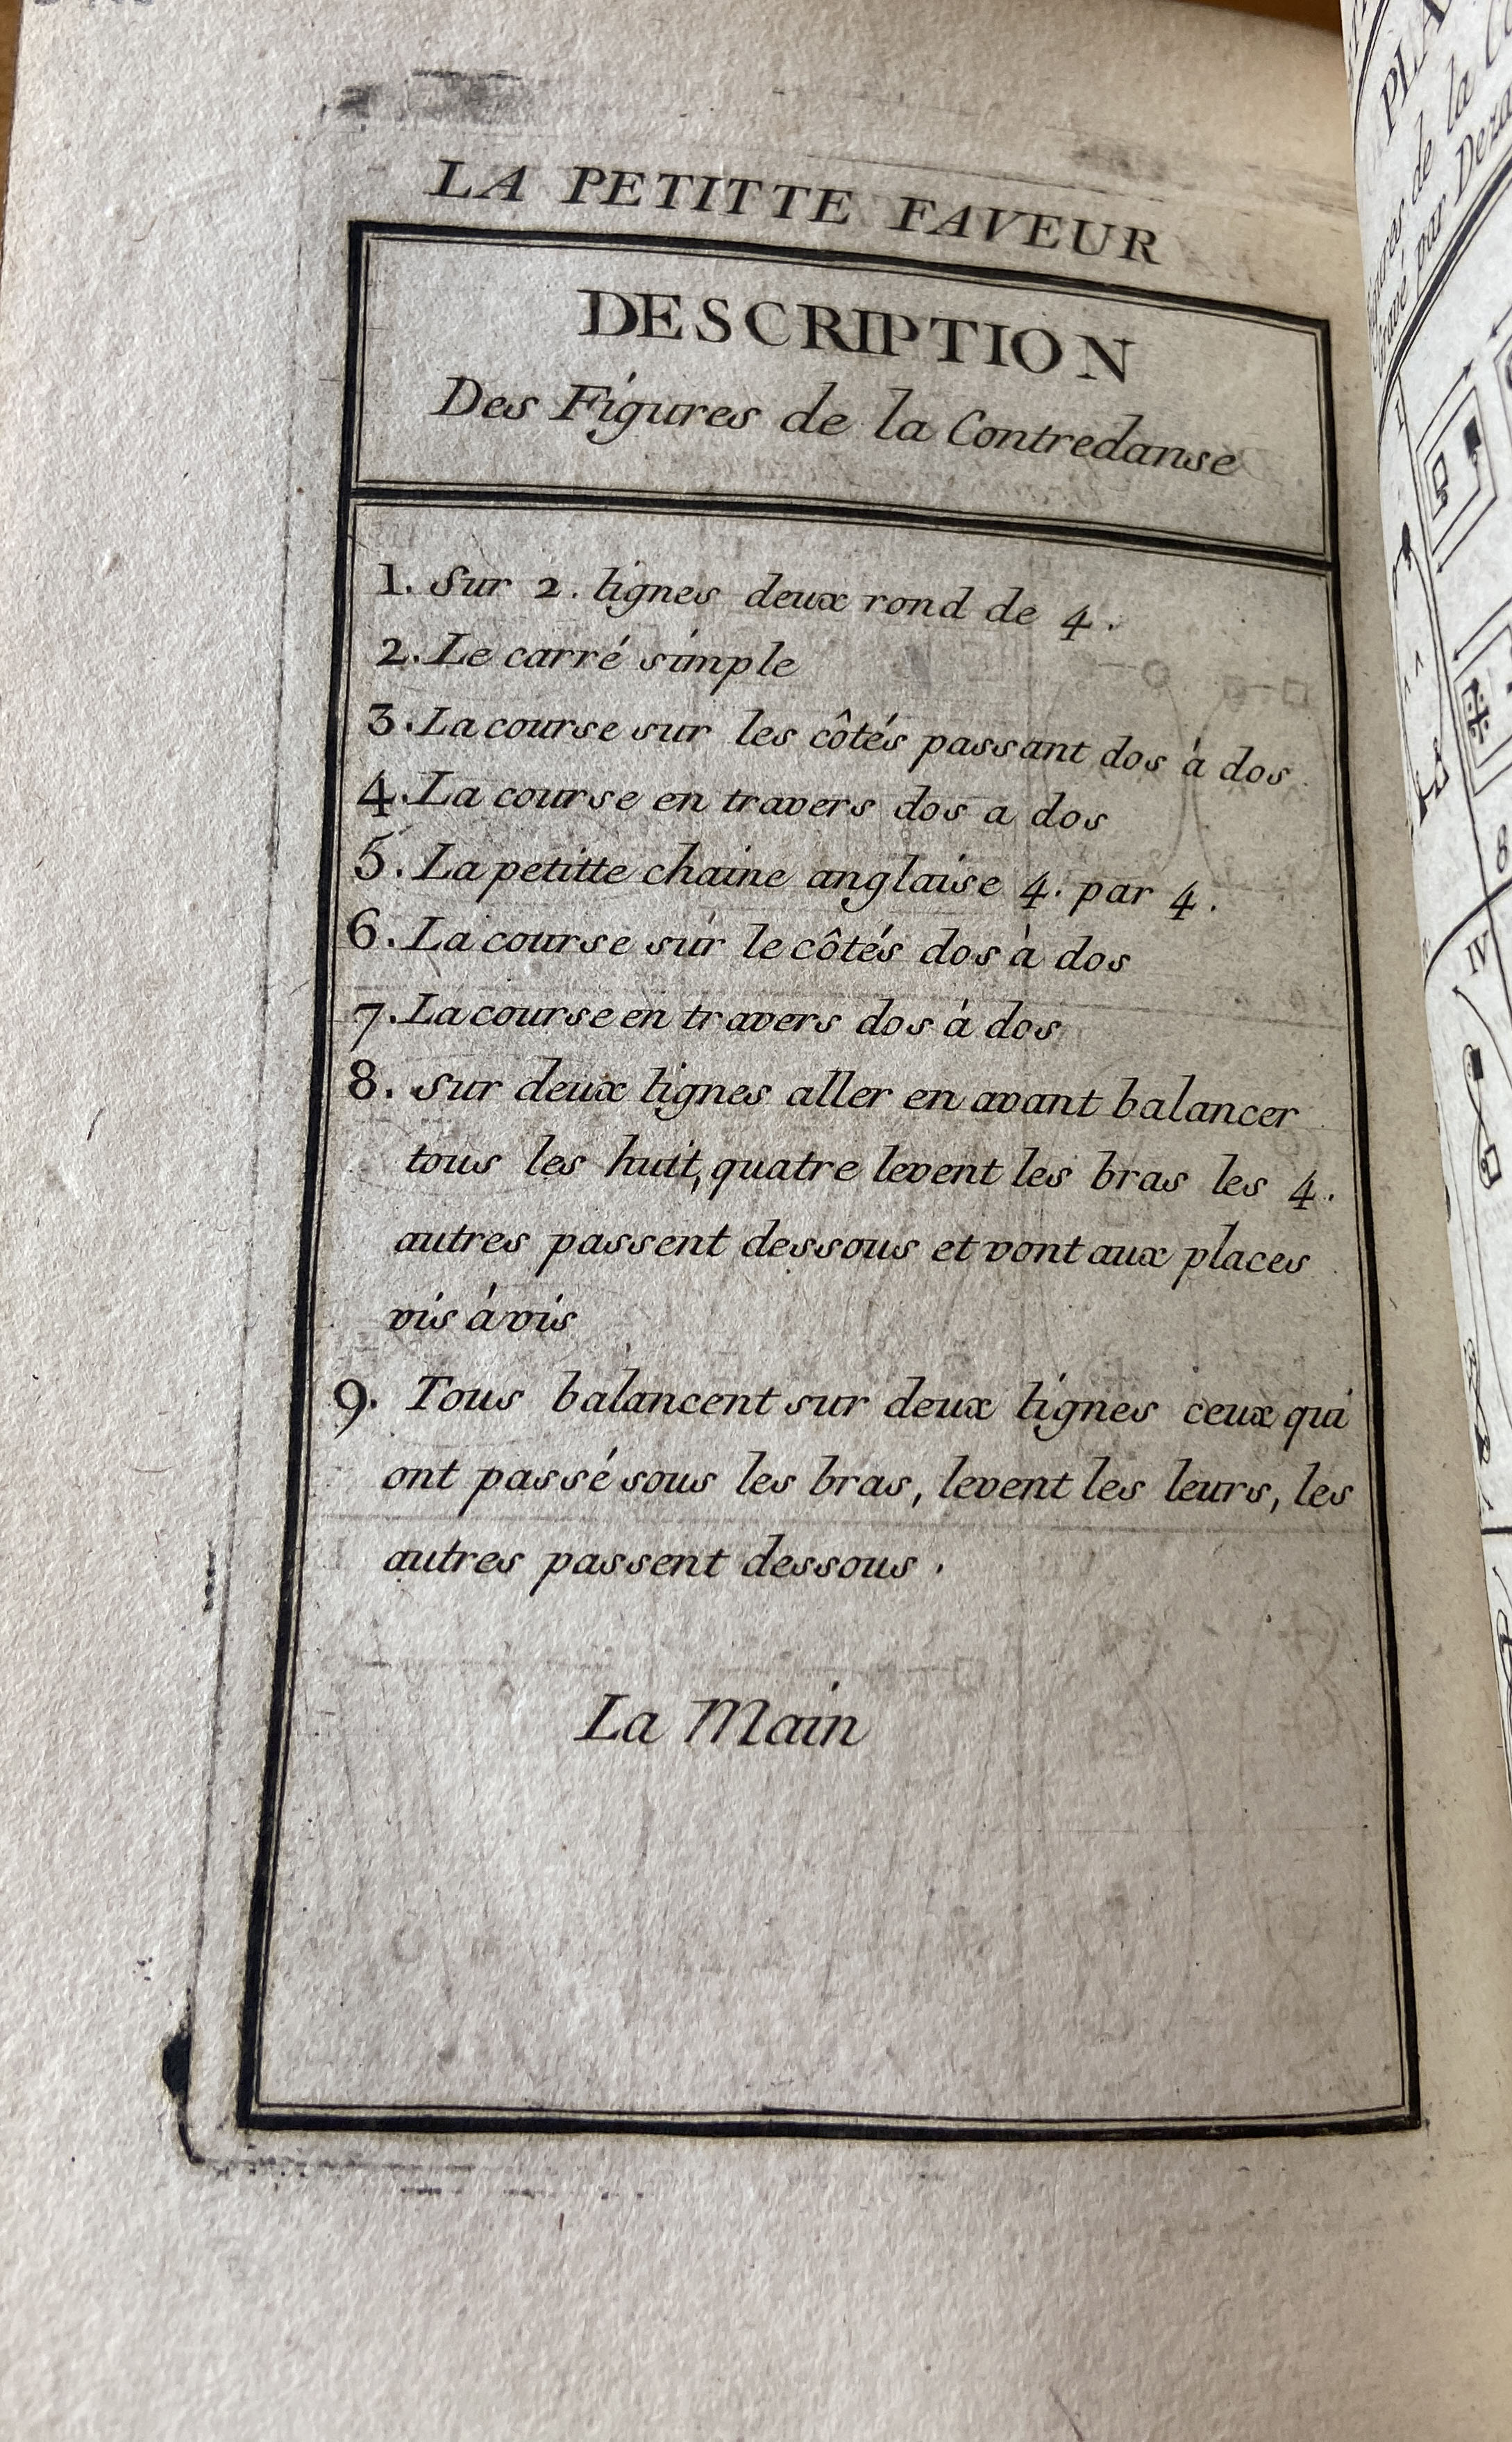 LA PETITTE FAVEUR
DESCRIPTION
Des Figures de la Contredanse
1. Sur 2. lignes deux rond de 4.
2. Le carré simple
3. La course sur les côtés passant dos à dos
4. La course en travers dos a dos
5. La petitte chaine anglaise 4. par 4.
6. La course sur le côtés dos à dos
7. La course en travers dos à dos
8. sur deux lignes aller en avant balancer
tous les huit, quatre levent les bras les 4.
autres passent dessous et vont aux places
vis à vis
9. Tous balancent sur deux lignes ceux qui
ont passé sous les bras, levent les leurs, les
autres passent dessous.
La Main
PLA
Figures de la Co
Gravé par Deza
I
IV